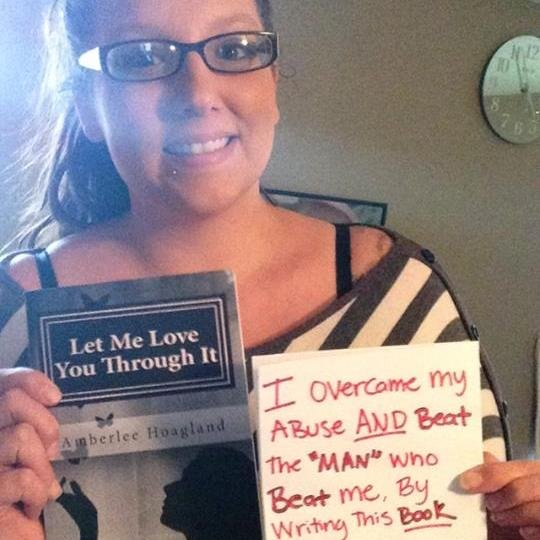 Let Me Love
You Through It
Amberlee Hoagland
I overcame my
Abuse AND Beat
The "MAN" who
Beat me, By
Writing This Book
10 12
8
7 6 5